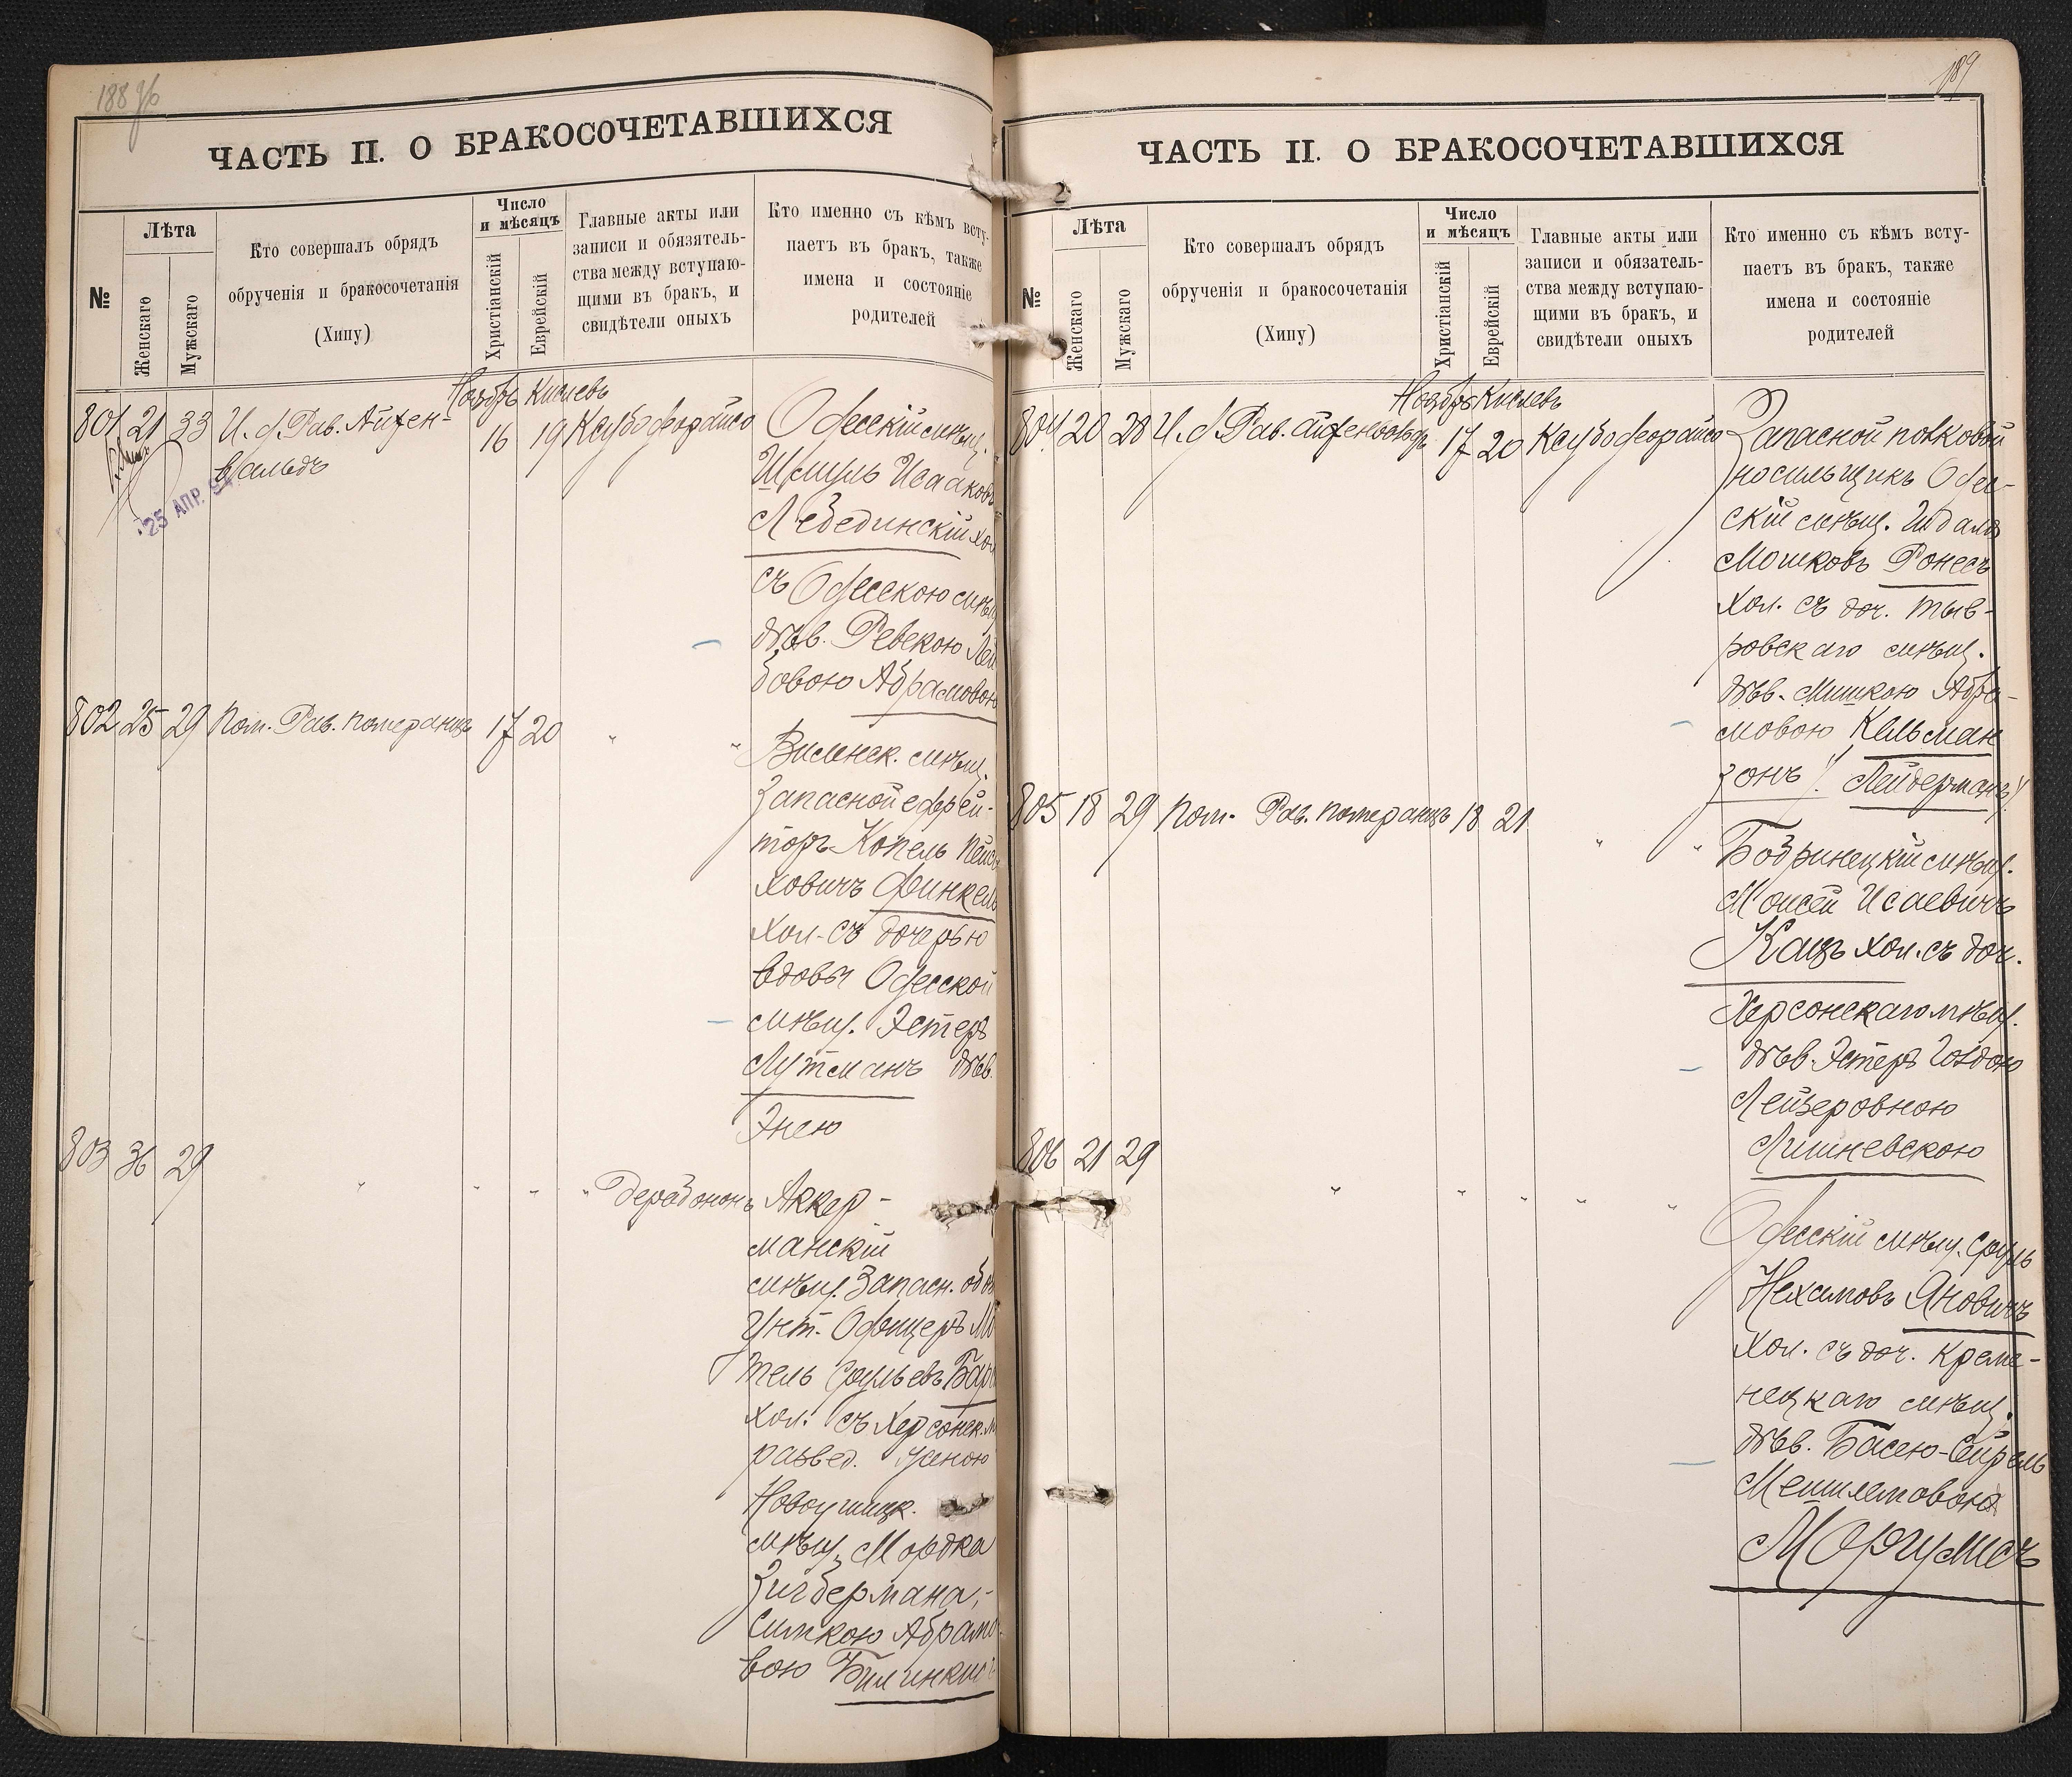 188 об
ЧАСТЬ II. О БРАКОСОЧЕТАВШИХСЯ
№
Лѣта
Женскаго
Мужскаго
Кто совершалъ обрядъ
обрученія и бракосочетанія
(Хипу)
Число
и мѣсяцъ
Христіанскій
Еврейскій
Главные акты или
записи и обязатель-
ства между вступаю-
щими въ бракъ, и
свидѣтели оныхъ
Кто именно съ кѣмъ всту-
паетъ въ бракъ, также
имена и состояніе
родителей
Ноябрь Кислевъ
801 21 33 И. д. Рав. Айхен-
вальдъ
16 19
25 АПР.
Одесскій мѣщ.
Шмуль Исааковъ
Лебединскій хол
съ Одесскою мѣщ
дѣв. Ревекою Лей
бовою Абрамовою
802 25 29 Пом. Рав. Померанцъ 17 20 " "
Виленск. мѣщ.
Запасной ефрей-
торъ Копель Пейса
ховичъ Финкель
хол. съ дочерью
вдовы Одесской
мѣщ. Эстеръ
Лутманъ дѣв.
Энею
803 36 29 " " " "
Аккер-
манскій
мѣщ. Запасн.
Унт. Офицеръ Мо
тель Срульевъ
хол. съ Херсонск. м
развед. женою
Новоушицк.
мѣщ. Мордка
Зильбермана,-
Симкою Абрамо
вою Билинкис
189
ЧАСТЬ II. О БРАКОСОЧЕТАВШИХСЯ
№
Лѣта
Женскаго
Мужскаго
Кто совершалъ обрядъ
обрученія и бракосочетанія
(Хипу)
Число
и мѣсяцъ
Христіанскій
Еврейскій
Главные акты или
записи и обязатель-
ства между вступаю-
щими въ бракъ, и
свидѣтели оныхъ
Кто именно съ кѣмъ всту-
паетъ въ бракъ, также
имена и состояніе
родителей
Ноябрь Кислевъ
804 20 28 И. д. Рав. Айхенвальдъ 17 20
Запасной полковой
носильщикъ Одес-
скій мѣщ.
Мошковъ Ронесъ
хол. съ доч. Тыв-
ровскаго мѣщ.
дѣв. Минкою Абра-
мовою Кельман
зонъ /Лейдерманъ/
805 18 29 Пом. Рав. Померанцъ 18 21 " "
Бобринецкій мѣщ.
Моисей Исаевичъ
Кацъ хол. съ доч.
Херсонскаго мѣщ.
дѣв. Эстеръ Голдою
Лейзеровною
Лишневскою
806 21 29 " " " " "
Одесскій мѣщ. Сруль
Нехимовъ Яновичъ
хол. съ доч. Креме-
нецкаго мѣщ.
дѣв. Басею-Сейрель
Мешилемовою
Моргулисъ